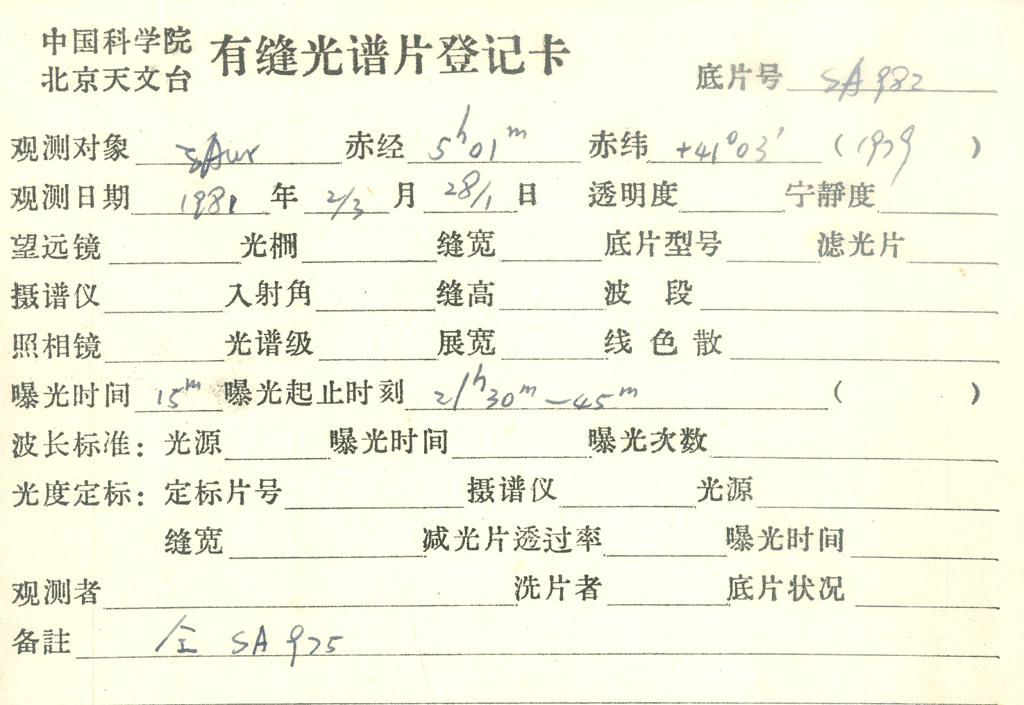 中国科学院
北京天文台
有缝光谱片登记卡
底片号 SA 982
观测对象 ζAur 赤经 5h01m 赤纬 +41°03′ (1979)
观测日期 1981 年 2/3 月 28/1 日 透明度 宁静度
望远镜 光栅 缝宽 底片型号 滤光片
摄谱仪 入射角 缝高 波段
照相镜 光谱级 展宽 线色散
曝光时间 15m 曝光起止时刻 21h30m—45m ( )
波长标准: 光源 曝光时间 曝光次数
光度定标: 定标片号 摄谱仪 光源
缝宽 减光片透过率 曝光时间
观测者 洗片者 底片状况
备註 仝 SA 975